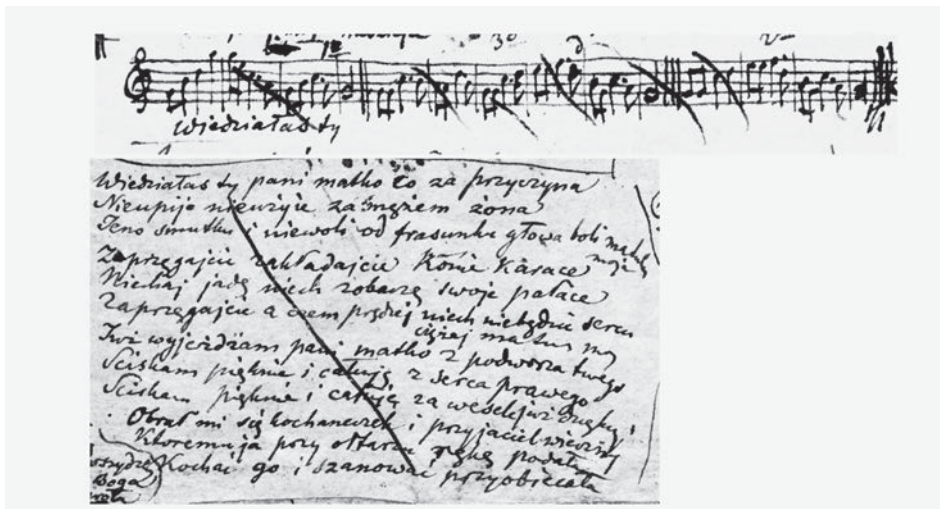 Wiedziałaś ty
Wiedziałaś ty pani matko co za przyczyna
Nieupije nieużyie za mężem żona
Jeno smutku i niewoli od frasunku głowa boli matulu moja
Zaprzęgajcie zakładajcie Konie Karace
Niechaj jadę niech zobaczę swoje pałace
Zaprzęgajcie a czem prędzej niech niebędzie sercu ciężej
Już wyjeżdżam pani matko z podworza twego
Sciskam pięknie i całuję z serca prawego
Sciskam pięknie i całuję za wesele
Obrał mi się kochaneczek i przyjaciel wieczny
Któremu ja przy ołtarzu rękę podała
Kochać go i szanować przyobiecała
Boga